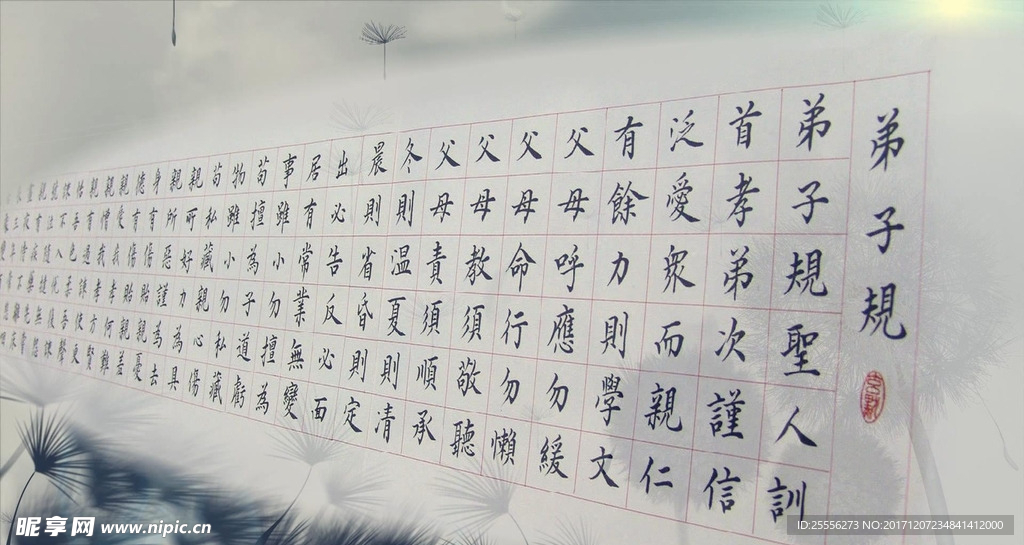 弟子規
弟子規聖人訓
首孝弟次謹信
泛愛眾而親仁
有餘力則學文
父母呼應勿緩
父母命行勿懶
父母教須敬聽
父母責須順承
冬則溫夏則清
晨則省昏則定
出必告反必面
居有常業無變
事雖小勿擅為
苟擅為子道虧
物雖小勿私藏
苟私藏親心傷
親所好力為具
親所惡謹為去
身有傷貽親憂
德有傷貽親羞
親愛我孝何難
親憎我孝方賢
親有過諫使更
昵享网 www.nipic.cn
ID:25556273 NO:20171207234841412000